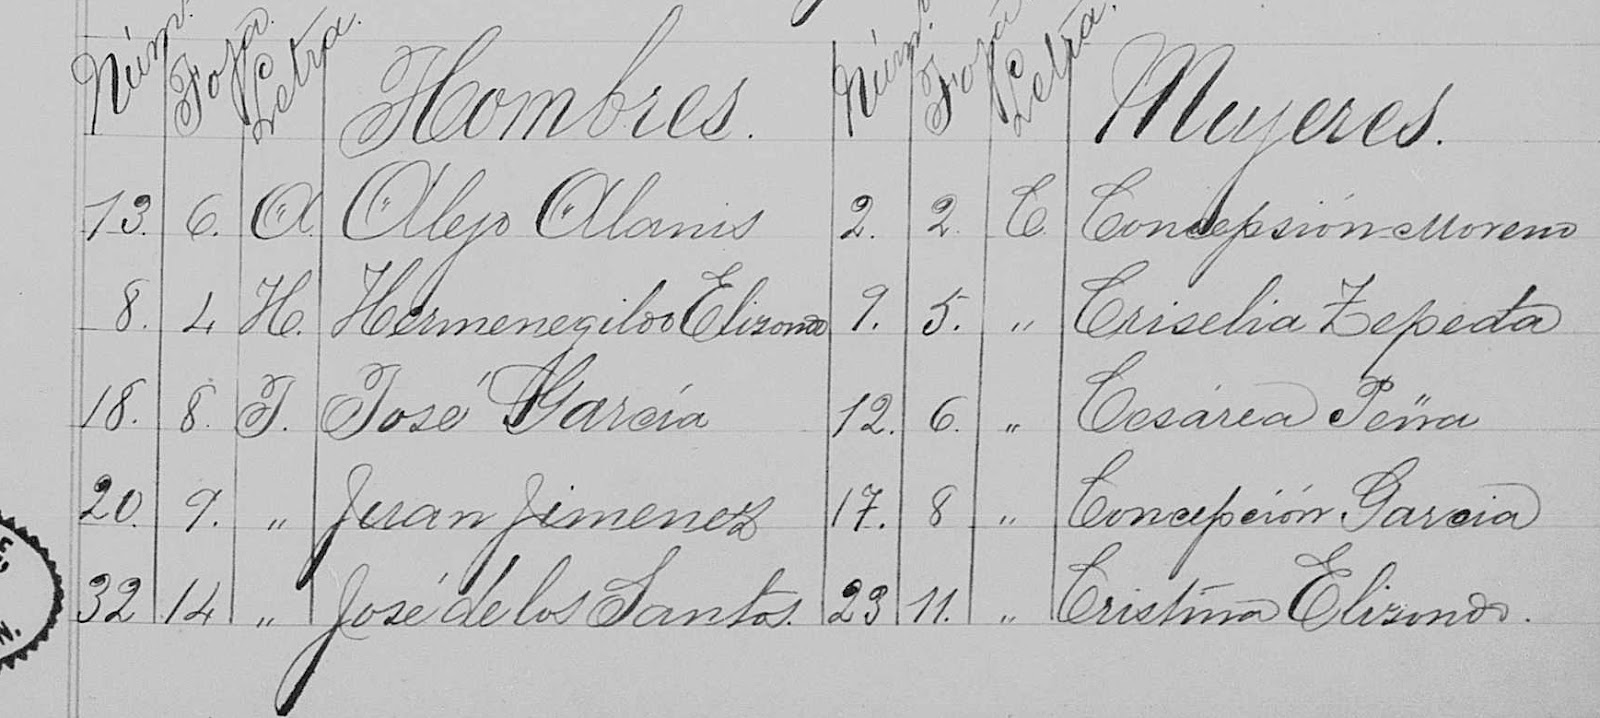 Núm. Foja Letra. Hombres. Núm. Foja Letra. Mujeres.
13. 6. A. Alejo Alanis 2. 2. C Concepsión Moreno
8. 4 H. Hermenegildo Elizondo 9. 5. „ Criselia Zepeda
18. 8. J. José García 12. 6. „ Cesárea Peña
20. 9. „ Juan Jimenez 17. 8 „ Concepción Garcia
32 14 „ José de los Santos. 23 11. „ Cristina Elizondo.